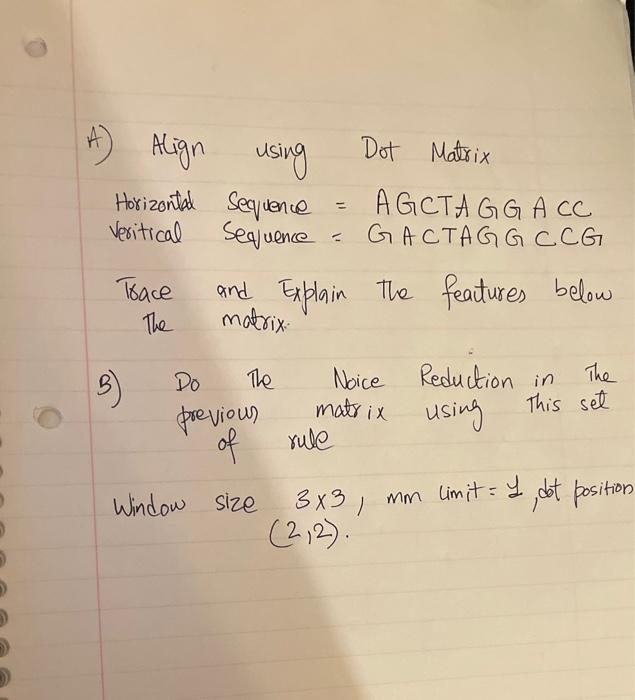 A) Align using Dot Matrix
Horizontal Sequence = AGCTAGGACC
Veritical Sequence = GACTAGGCCG
Trace and Explain The features below
The matrix.
B) Do The Noice Reduction in The
previous matrix using This set
of rule
Window size 3x3, mm limit = 1, dot position
(2,2).